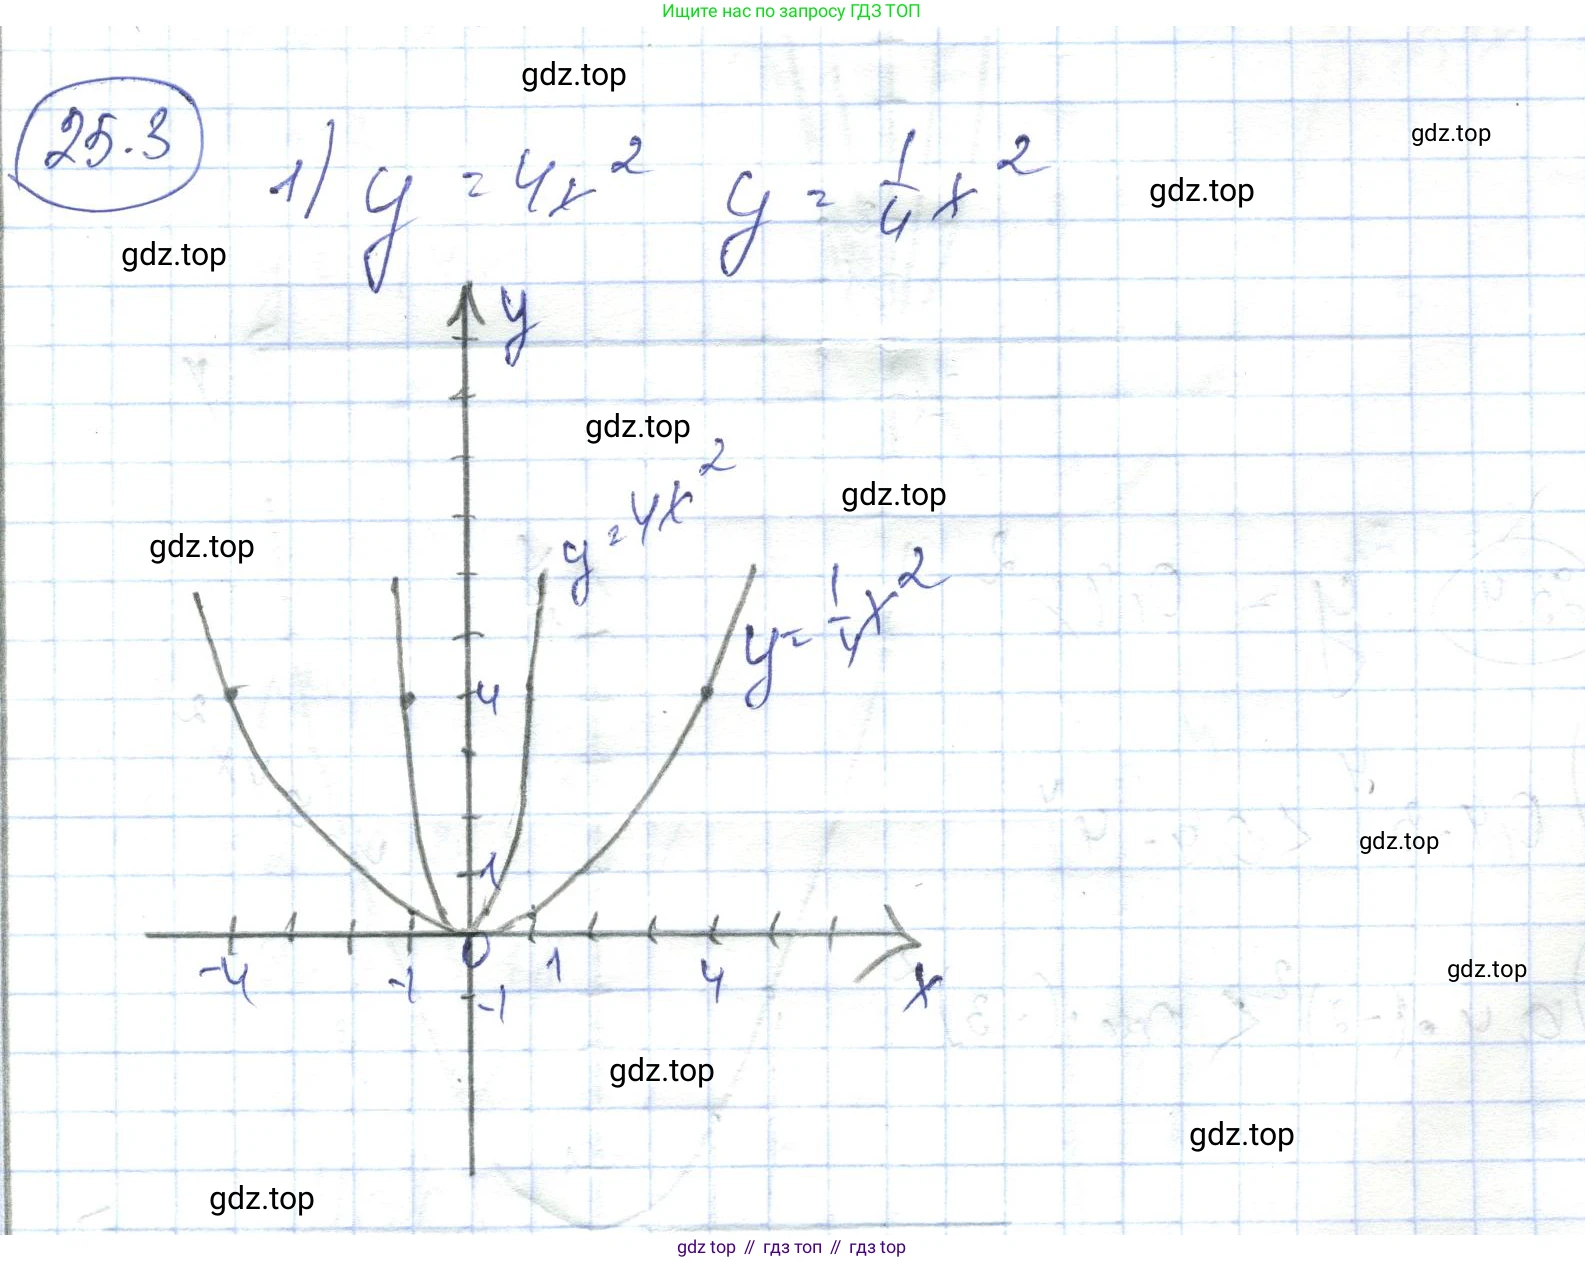 Ищите нас по запросу ГДЗ ТОП
gdz.top
25.3
1) y = 4x² y = 1/4 x²
gdz.top
gdz.top
gdz.top
y
gdz.top
y = 4x²
gdz.top
gdz.top
y = 1/4 x²
4
gdz.top
1
-4 -1 0 1 4 x
gdz.top
-1
gdz.top
gdz.top
gdz.top
gdz top // гдз топ // гдз top